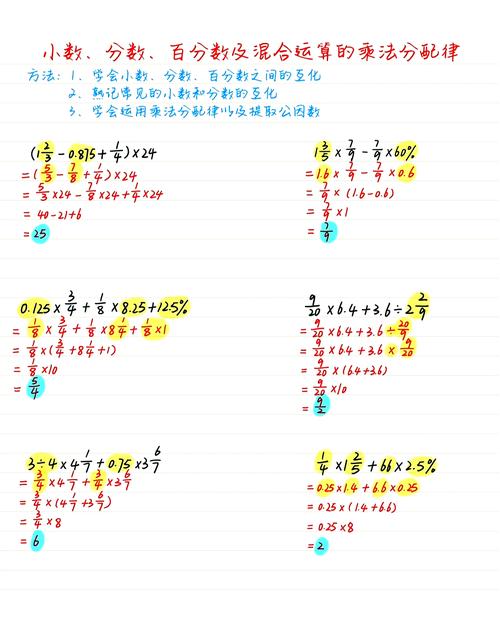 小数、分数、百分数及混合运算的乘法分配律
方法：1、学会小数、分数、百分数之间的互化
2、熟记常见的小数和分数的互化
3、学会运用乘法分配律以及提取公因数
(1 2/3 - 0.875 + 1/4) × 24
= (5/3 - 7/8 + 1/4) × 24
= 5/3 × 24 - 7/8 × 24 + 1/4 × 24
= 40 - 21 + 6
= 25
1 3/5 × 7/9 - 7/9 × 60%
= 1.6 × 7/9 - 7/9 × 0.6
= 7/9 × (1.6 - 0.6)
= 7/9 × 1
= 7/9
0.125 × 3/4 + 1/8 × 8.25 + 12.5%
= 1/8 × 3/4 + 1/8 × 8 1/4 + 1/8 × 1
= 1/8 × (3/4 + 8 1/4 + 1)
= 1/8 × 10
= 5/4
9/20 × 6.4 + 3.6 ÷ 2 2/9
= 9/20 × 6.4 + 3.6 ÷ 20/9
= 9/20 × 6.4 + 3.6 × 9/20
= 9/20 × (6.4 + 3.6)
= 9/20 × 10
= 9/2
3 ÷ 4 × 4 1/7 + 0.75 × 3 6/7
= 3/4 × 4 1/7 + 3/4 × 3 6/7
= 3/4 × (4 1/7 + 3 6/7)
= 3/4 × 8
= 6
1/4 × 1 2/5 + 66 × 2.5%
= 0.25 × 1.4 + 6.6 × 0.25
= 0.25 × (1.4 + 6.6)
= 0.25 × 8
= 2